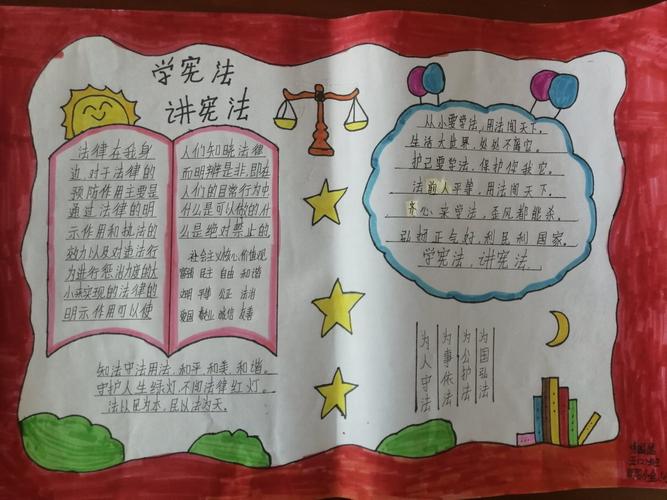 学宪法
讲宪法
法律在我身
边,对于法律的
预防作用主要是
通过法律的明
示作用和执法的
效力以及对违法行
为进行惩治力度的大
小来实现的法律的
明示作用可以使
人们知晓法律
而明辨是非,即在
人们的日常行为中
什么是可以做的什
么是绝对禁止的
社会主义核心价值观
富强 民主 自由 和谐
文明 平等 公正 法治
爱国 敬业 诚信 友善
知法守法用法,和平和美,和谐。
守护人生绿灯,不闯法律红灯。
法以民为本,民以法为天。
从小要学法,用法闯天下。
生活大世界,处处不离它。
护己要学法,保护你我它。
法前人平等,用法闯天下。
齐心来学法,歪风都能杀。
弘扬正气好,利民利国家。
学宪法,讲宪法。
为人守法
为事依法
为公护法
为国弘法